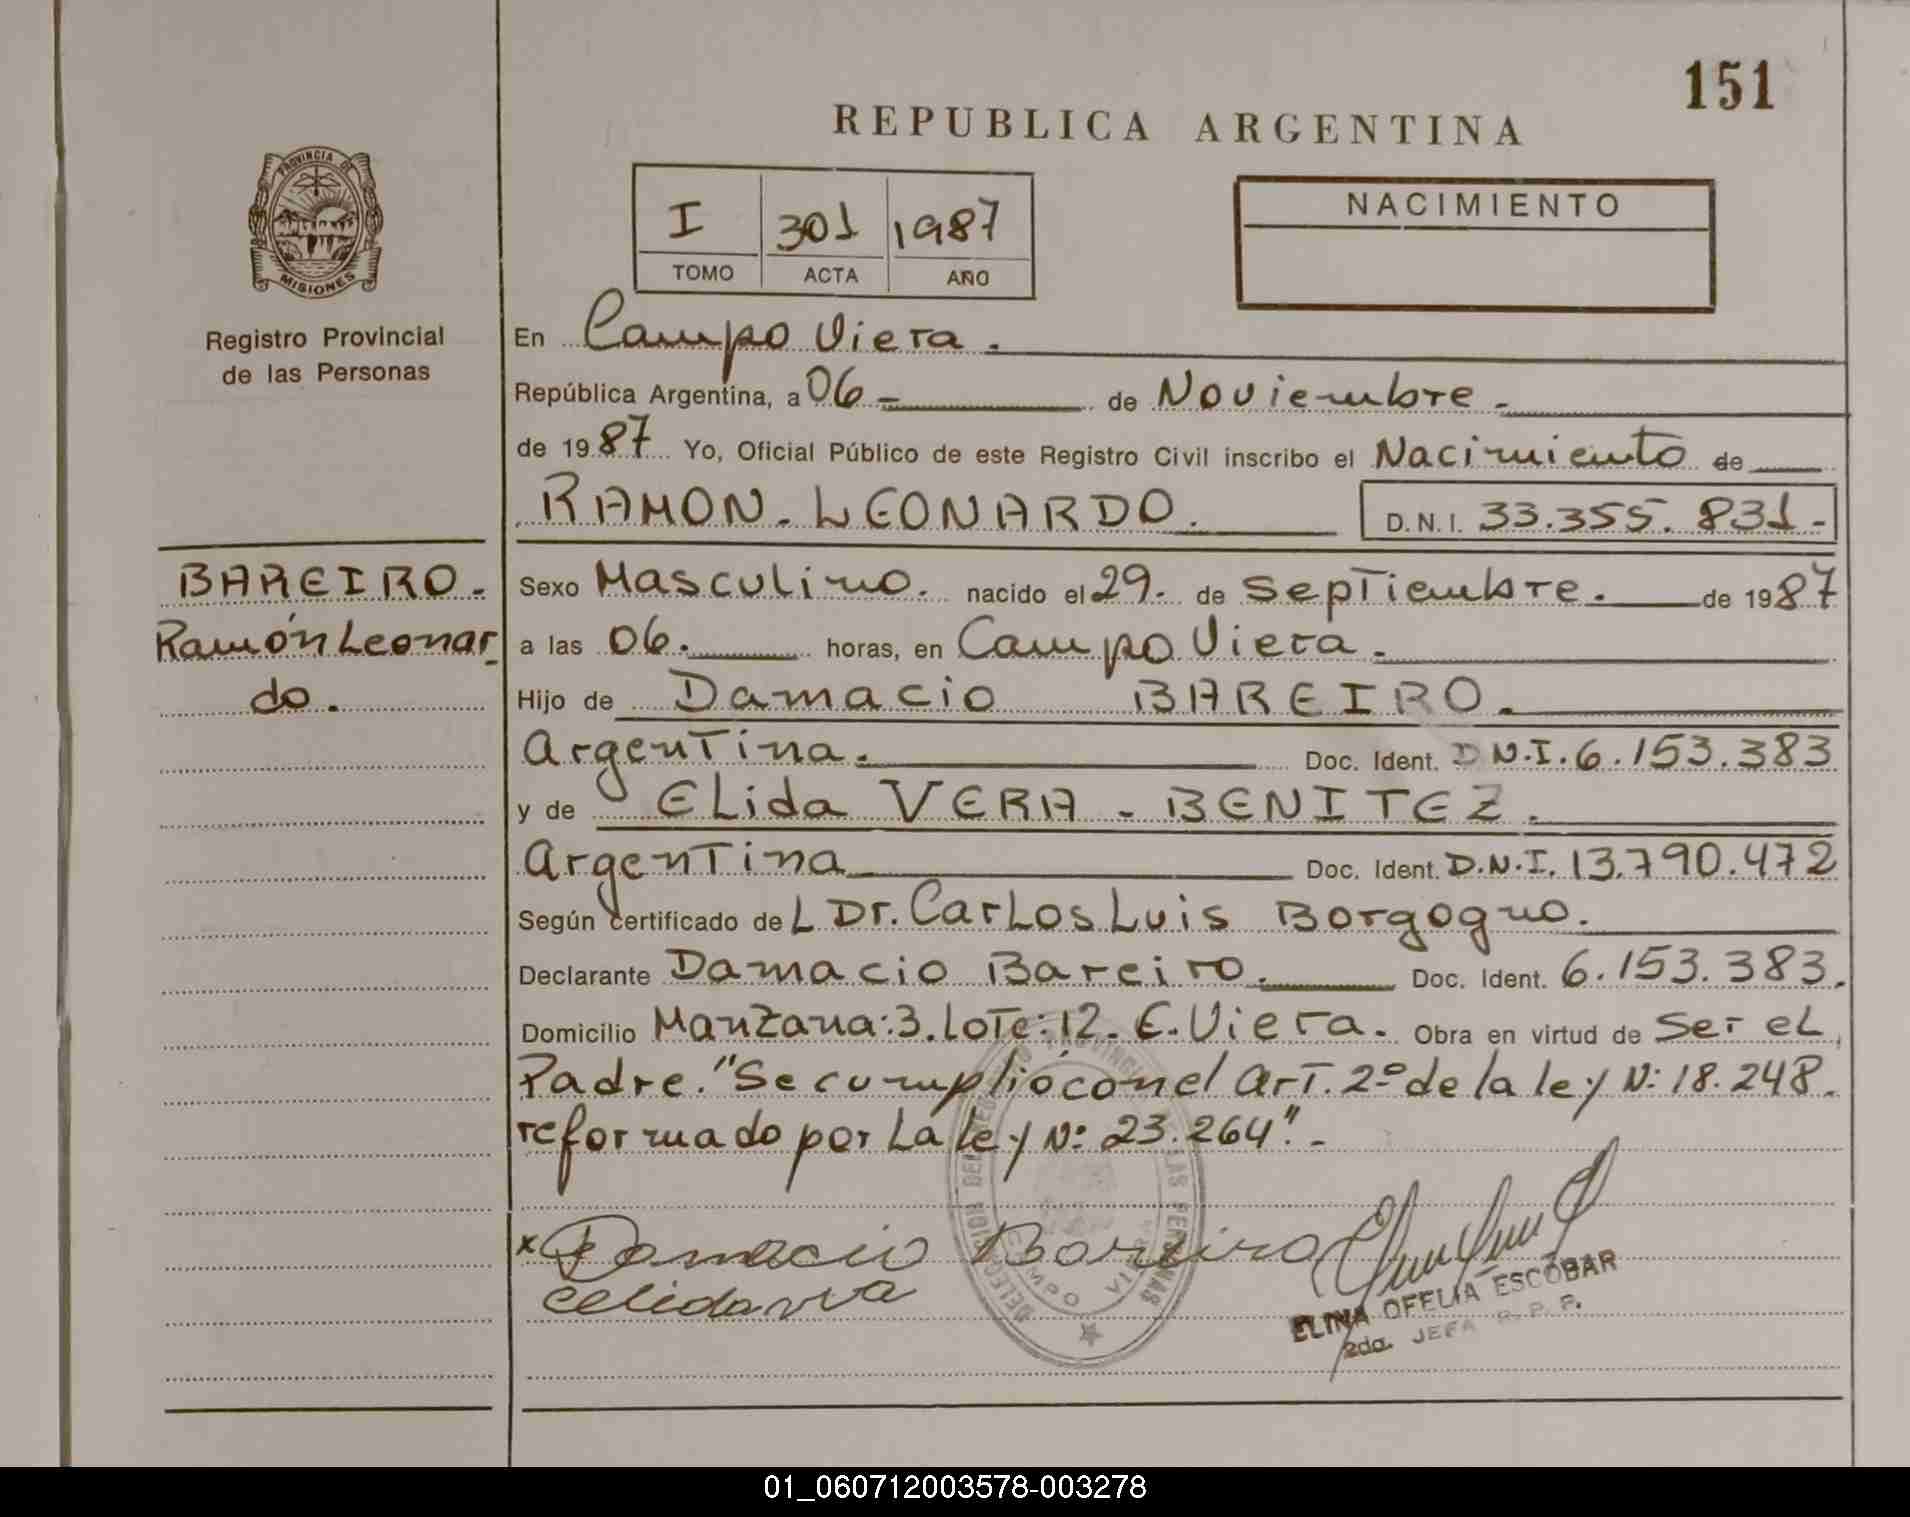 151
REPUBLICA ARGENTINA
PROVINCIA DE
MISIONES
Registro Provincial
de las Personas
I 301 1987
TOMO ACTA AÑO
NACIMIENTO
En Campo Viera.
República Argentina, a 06 - de Noviembre.
de 1987 Yo, Oficial Público de este Registro Civil inscribo el Nacimiento de
RAMON - LEONARDO. D.N.I. 33.355.831.-
BAREIRO.
Ramón Leonar
do.
Sexo Masculino. nacido el 29. de Septiembre. de 1987
a las 06. horas, en Campo Viera.
Hijo de Damacio BAREIRO.
Argentina. Doc. Ident. D.N.I. 6.153.383
y de ELida VERA - BENITEZ.
Argentina Doc. Ident. D.N.I. 13.790.472
Según certificado de L Dr. Carlos Luis Borgogno.
Declarante Damacio Bareiro. Doc. Ident. 6.153.383.
Domicilio Manzana: 3. Lote: 12. C. Viera. Obra en virtud de Ser el
Padre. "Se cumplió con el art. 2º de la ley Nº 18.248.
reformado por la ley Nº 23.264".-
x Damacio Bareiro
DELEGACION DEL REGISTRO PROVINCIAL DE LAS PERSONAS
CAMPO VIERA
ELINA OFELIA ESCOBAR
2da. JEFA R. P. P.
01_060712003578-003278